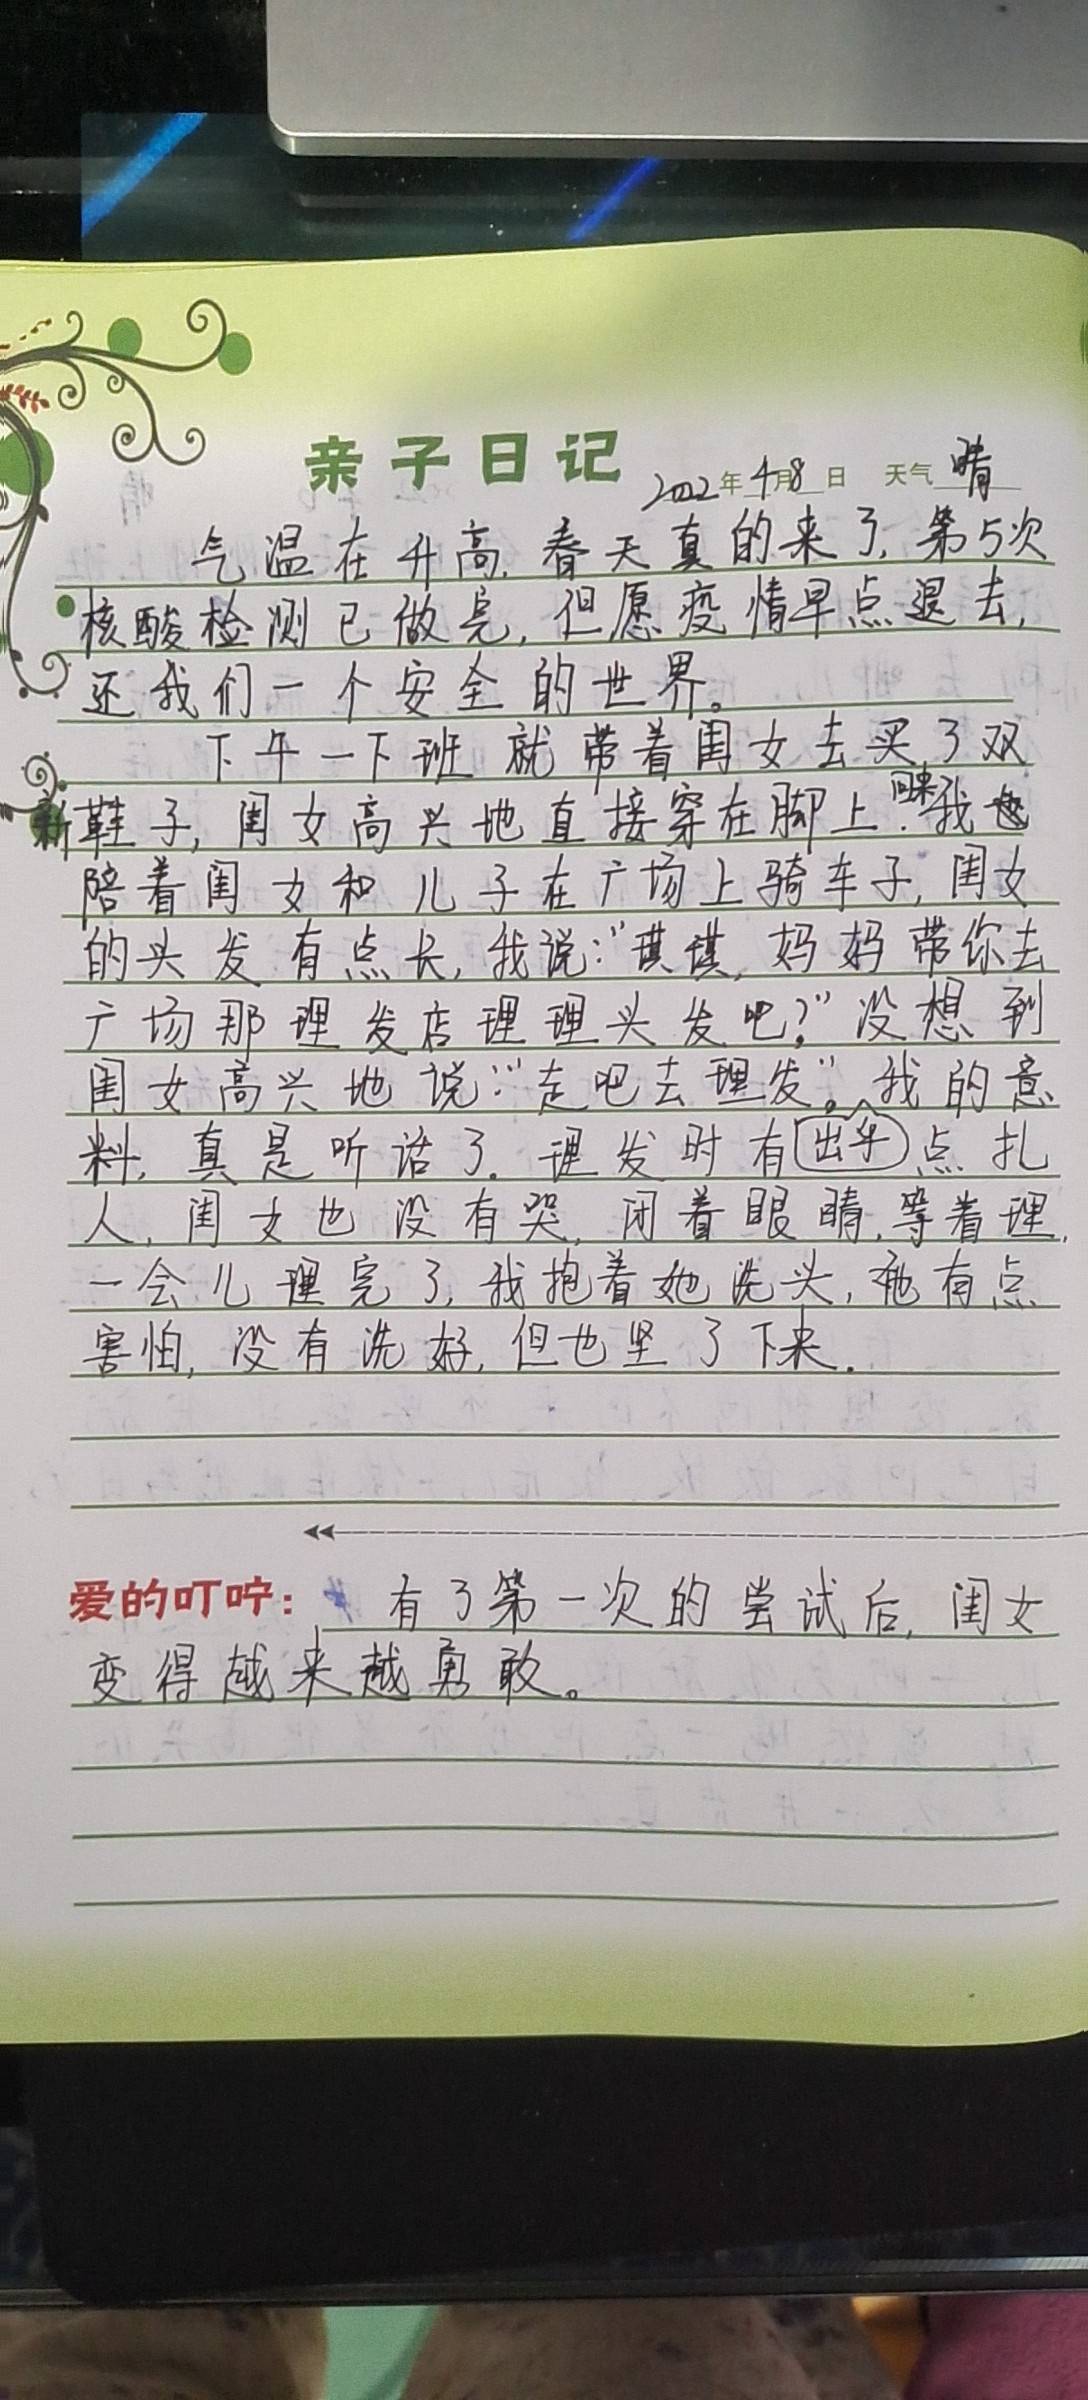 亲子日记 2022年4月8日 天气晴
气温在升高,春天真的来了,第5次
核酸检测已做完,但愿疫情早点退去,
还我们一个安全的世界。
下午一下班就带着闺女去买了双
新鞋子,闺女高兴地直接穿在脚上.回来我也
陪着闺女和儿子在广场上骑车子,闺女
的头发有点长,我说:“琪琪,妈妈带你去
广场那理发店理理头发吧?”没想到
闺女高兴地说:“走吧去理发”。出乎我的意
料,真是听话了.理发时有点扎
人,闺女也没有哭,闭着眼睛,等着理,
一会儿理完了,我抱着她洗头,她有点
害怕,没有洗好,但也坚了下来.
爱的叮咛: 有了第一次的尝试后,闺女
变得越来越勇敢。